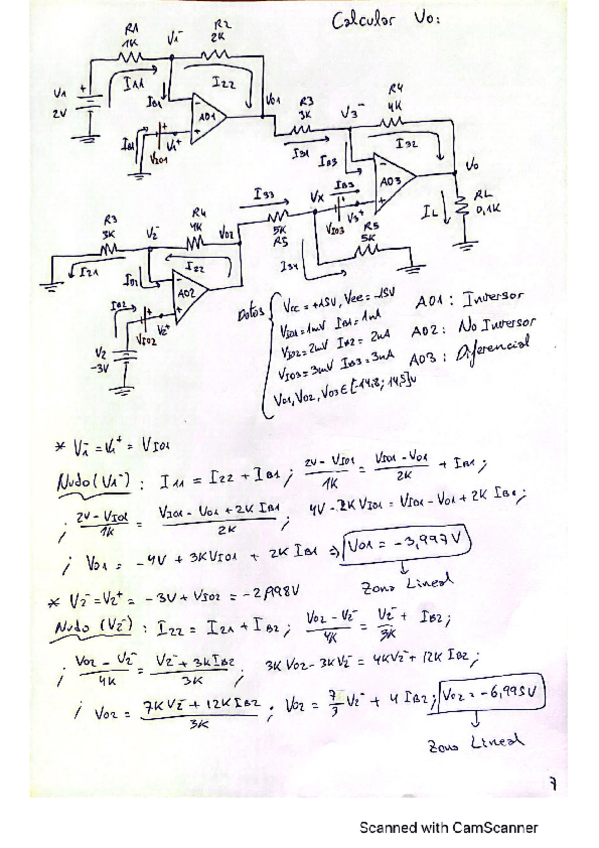 Calcular Vo:
R1
1K
V1⁻
R2
2K
I11
IB1
I22
V1
2V
+
-
AO1
Vo1
IB1
VIO1
V1⁺
R3
3K
V3⁻
R4
4K
I31
IB3
I32
AO3
Vo
IB3
VIO3
V3⁺
IL
RL
0,1K
I33
Vx
5K
R5
R5
5K
I34
R3
3K
V2⁻
R4
4K
Vo2
I21
IB2
I22
AO2
IB2
VIO2
V2⁺
V2
-3V
Datos
Vcc = +15V, VEE = -15V
VIO1 = 1mV IB1 = 1nA
VIO2 = 2mV IB2 = 2nA
VIO3 = 3mV IB3 = 3nA
Vo1, Vo2, Vo3 ∈ [-14,8; 14,5]V
AO1: Inversor
AO2: No Inversor
AO3: Diferencial
* V1⁻ = V1⁺ = VIO1
Nudo (V1⁻): I11 = I22 + IB1; 2V - VIO1 / 1K = VIO1 - Vo1 / 2K + IB1;
; 2V - VIO1 / 1K = VIO1 - Vo1 + 2K IB1 / 2K; 4V - 2K VIO1 = VIO1 - Vo1 + 2K IB1;
; Vo1 = -4V + 3K VIO1 + 2K IB1 ⇒ Vo1 = -3,997V
Zona Lineal
* V2⁻ = V2⁺ = -3V + VIO2 = -2,998V
Nudo (V2⁻): I22 = I21 + IB2; Vo2 - V2⁻ / 4K = V2⁻ / 3K + IB2;
; Vo2 - V2⁻ / 4K = V2⁻ + 3K IB2 / 3K; 3K Vo2 - 3K V2⁻ = 4K V2⁻ + 12K IB2;
; Vo2 = 7K V2⁻ + 12K IB2 / 3K; Vo2 = 7/3 V2⁻ + 4 IB2; Vo2 = -6,995V
Zona Lineal
7
Scanned with CamScanner